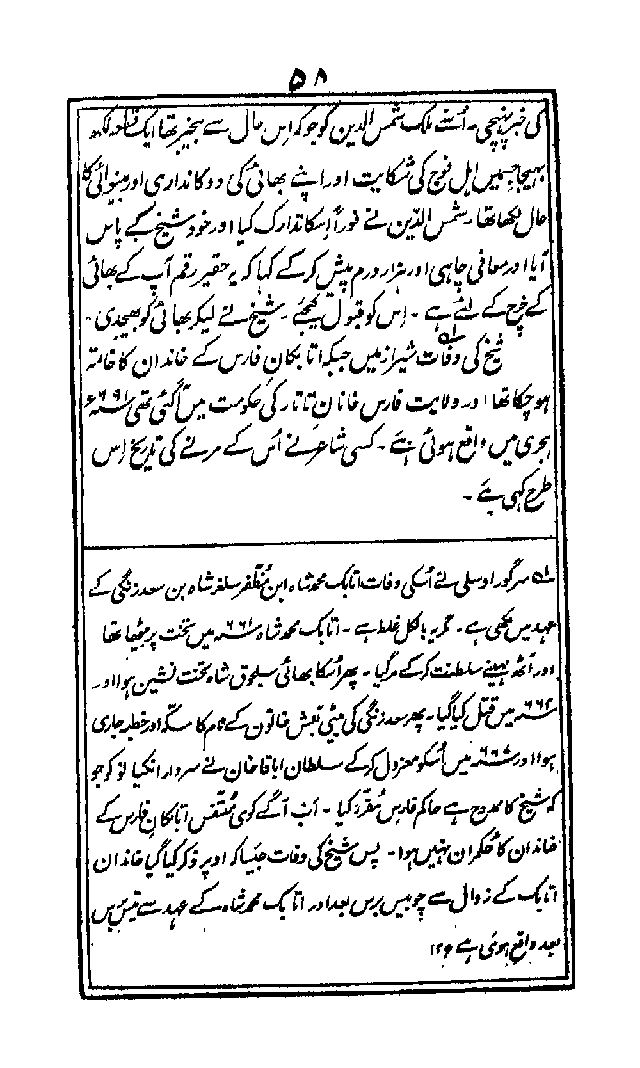 ۵۸
کی خبر پہنچی۔ اُسنے ملک شمس الدین کو جو کہ اِس حال سے بیخبر تھا ایک قطعہ لکھ
بھیجا جسمیں اہل فوج کی شکایت اور اپنے بھائی کی دوکانداری اور بینوائی کا
حال لکھا تھا۔ شمس الدین نے فوراً اِسکا تدارک کیا اور خود شیخ کے پاس
آیا اور معافی چاہی اور ہزار درم پیش کر کے کہا کہ یہ حقیر رقم آپ کے بھائی
کے خرچ کے لئے ہے۔ اِس کو قبول کیجئے۔ شیخ نے لیکر بھائی کو بھیجدی۔
شیخ کی وفات شیراز میں جبکہ اتابکان فارس کے خاندان کا خاتمہ
ہو چکا تھا اور ولایت فارس خانانِ تاتار کی حکومت میں آگئی تھی ۶۹۱؁ء
ہجری میں واقع ہوئی ہے۔ کسی شاعر نے اُس کے مرنے کی تاریخ اِس
طرح کہی ہے۔
؎۱ سرگور اوسلی نے اُسکی وفات اتابک محمد شاہ ابن مُظفر سلغر شاہ بن سعد زنگی کے
عہد میں لکھی ہے۔ مگر یہ بالکل غلط ہے۔ اتابک محمد شاہ ۶۶۱؁ میں تخت پر بیٹھا تھا
اور آٹھ مہینے سلطنت کر کے مر گیا۔ پھر اُسکا بھائی سلجوق شاہ تخت نشین ہوا اور
۶۶۲؁ میں قتل کیا گیا۔ پھر سعد زنگی کی بیٹی نعبش خاتون کے نام کا سکہ اور خطبہ جاری
ہوا اور ۶۶۷؁ میں اُسکو معزول کر کے سلطان اباقا خان نے سردار انکیانو کو جو
کہ شیخ کا ممدوح ہے حاکم فارس مُقرر کیا۔ اب آگے کوئی مُتنفس اتابکان فارس کے
خاندان کا حُکمران نہیں ہوا۔ پس شیخ کی وفات جیسا کہ اوپر ذکر کیا گیا خاندان
اتابک کے زوال سے چوبیس برس بعد اور اتابک محمد شاہ کے عہد سے تیس برس
بعد واقع ہوئی ہے ۱۲